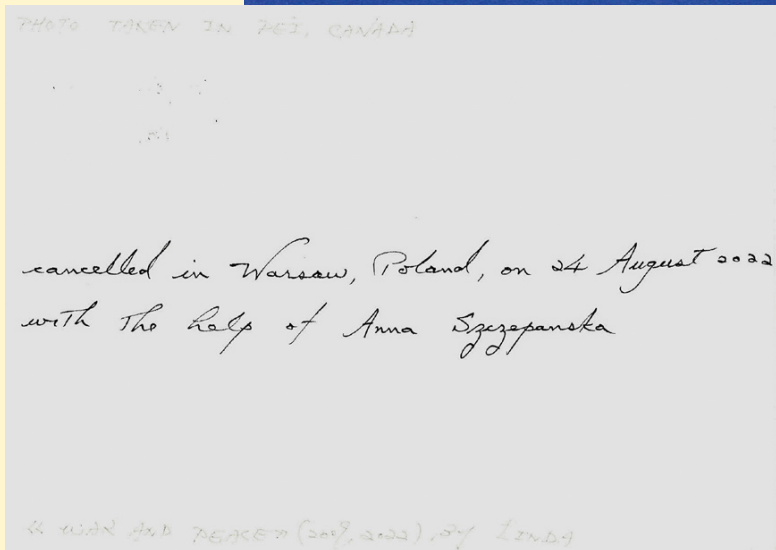 PHOTO TAKEN IN PEI, CANADA
cancelled in Warsaw, Poland, on 24 August 2022
with the help of Anna Szczepanska
"WAR AND PEACE" (2009, 2022), BY LINDA